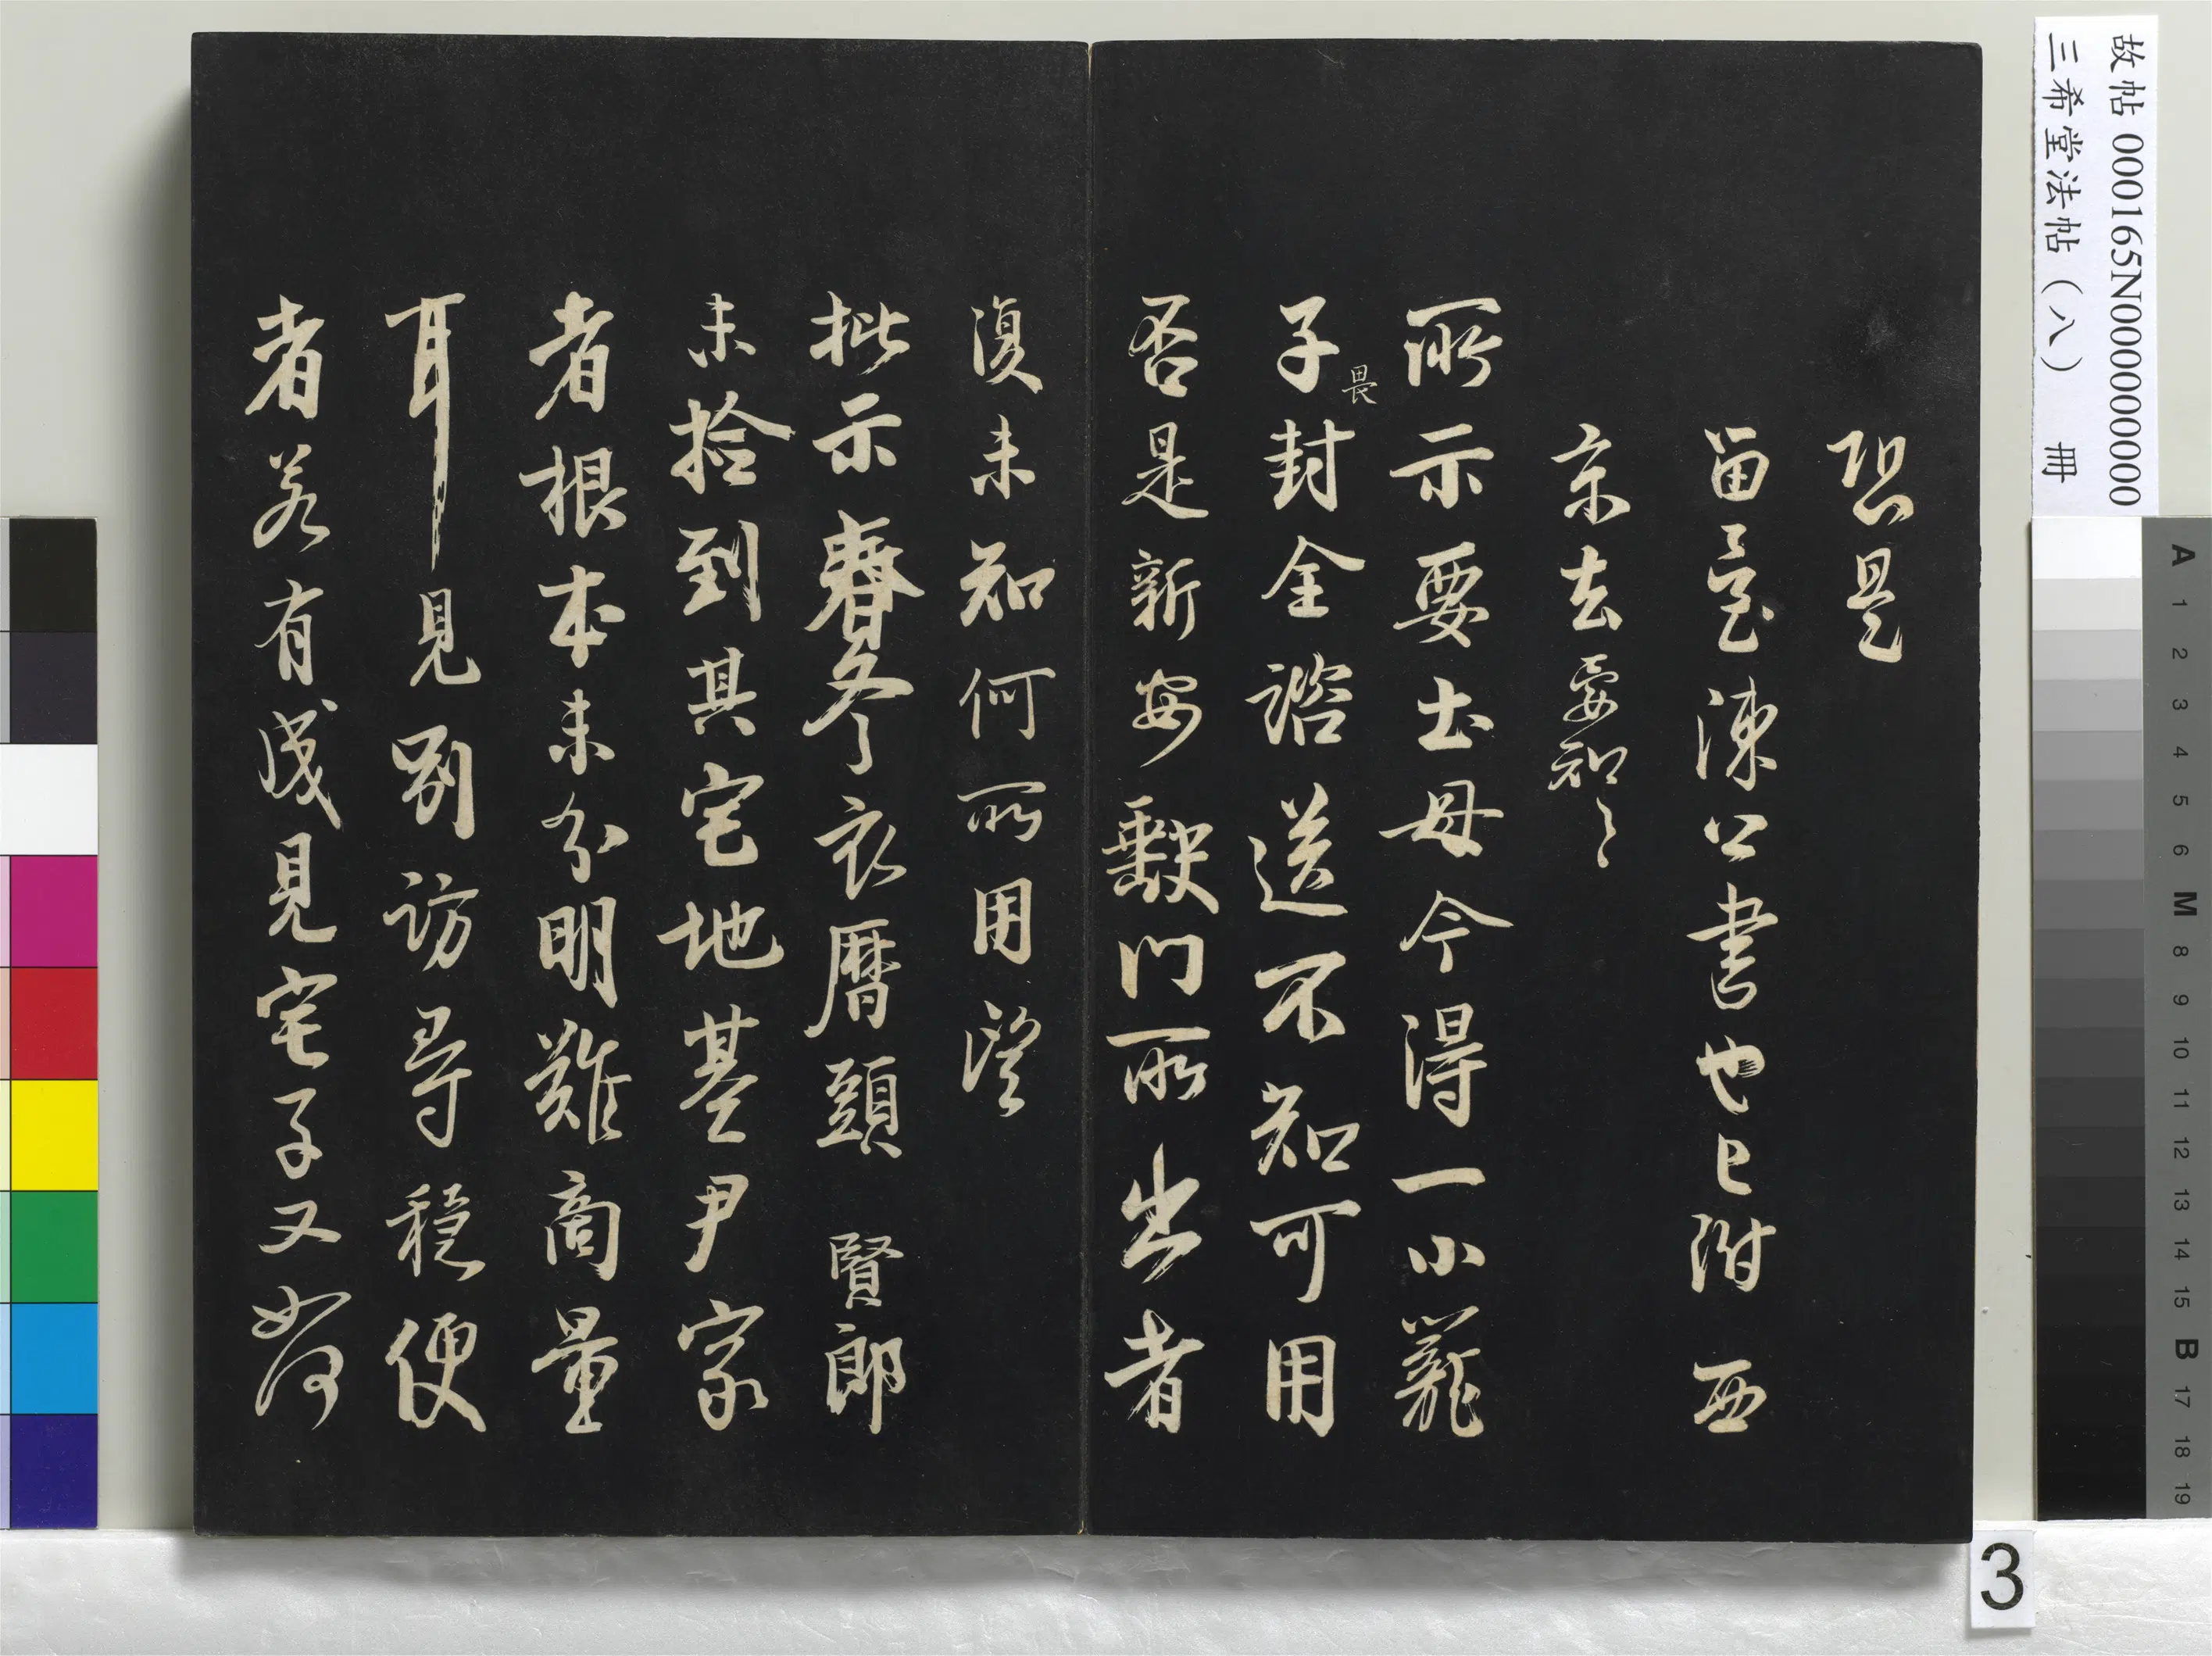 恐是
留臺陳公書也已附西
京去要知〻
所示要土母今得一小籠
子封全諮送不知可用
畏
否是新安缺門所出者
復未知何所用望
批示春冬衣曆頭賢郎
未拾到其宅地基尹家
者根本未分明難商量
耳見別訪尋穩便
者若有成見宅子又如何
故帖 000165N000000000
三希堂法帖(八) 冊
3
A 1 2 3 4 5 6 M 8 9 10 11 12 13 14 15 B 17 18 19